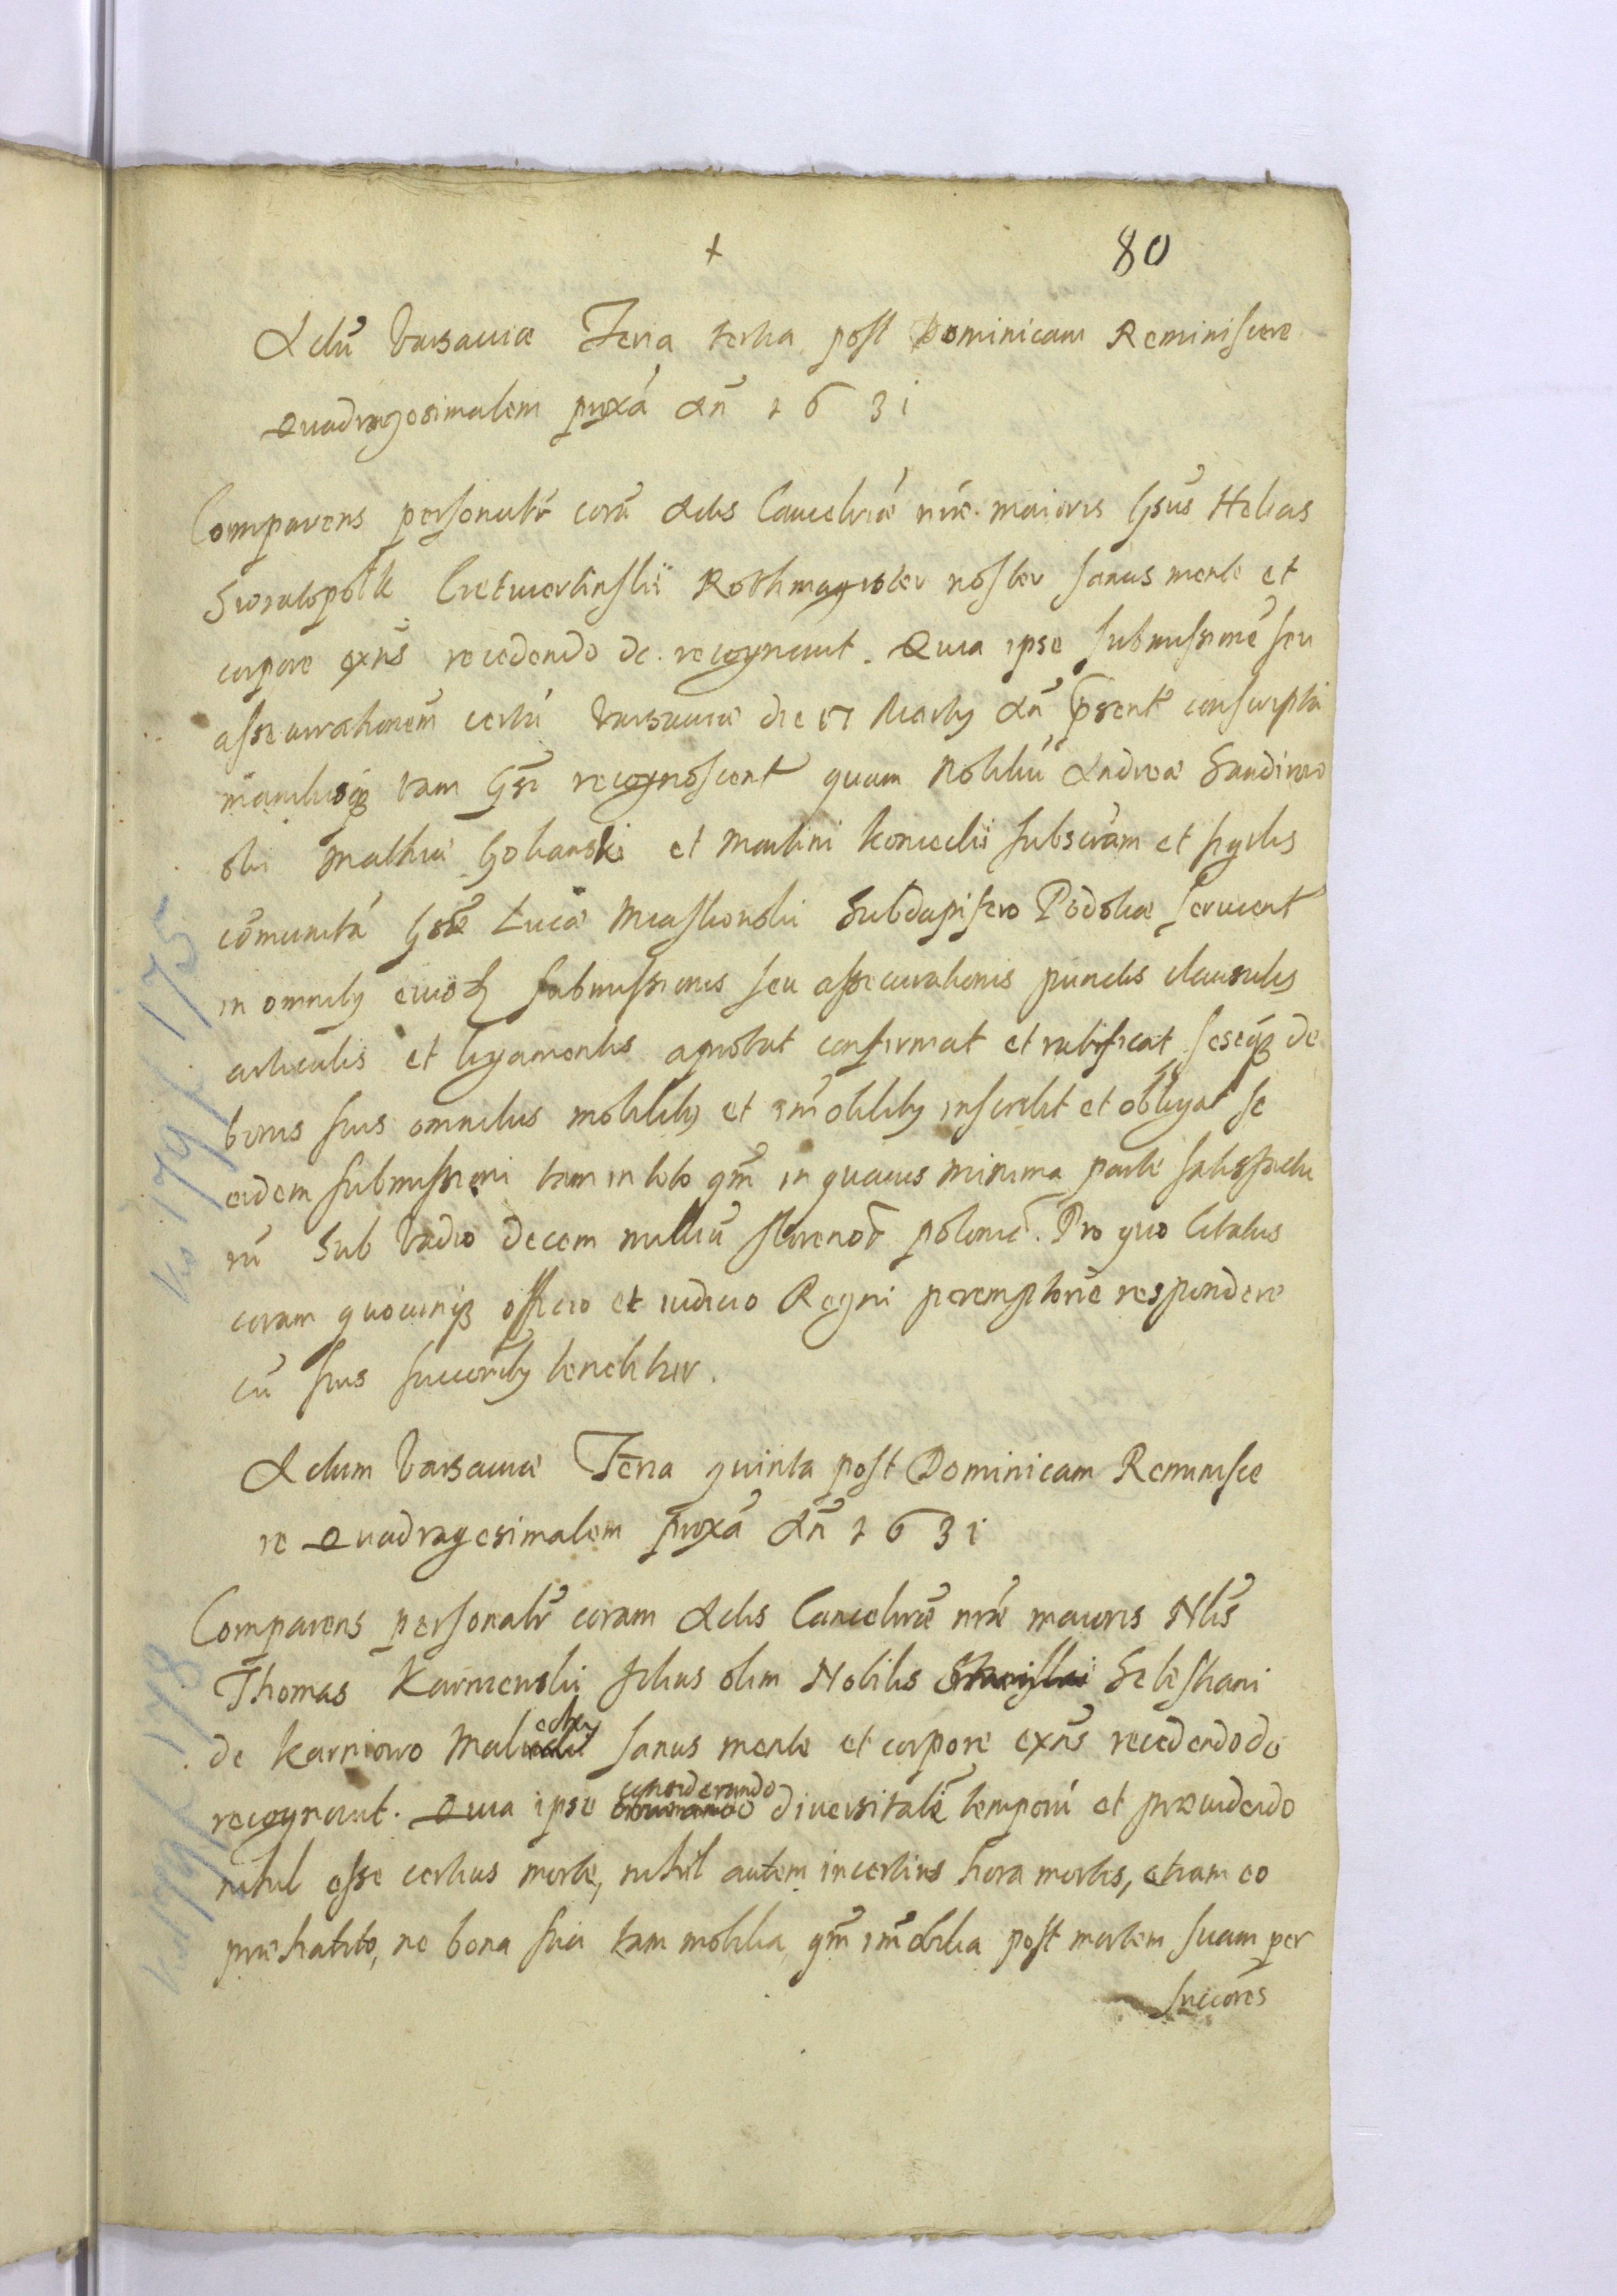 +
80
Actũ Varsauiæ Feria tertia post Dominicam Reminiscere
Quadragesimalem proxã Añ 1631
Comparens personalr̃ corã Actis Cancelriæ nr̃æ maioris Gsũs Helias
Swiatopolk Cietwertinskii Rothmagister noster sanus mente et
corpore exñs recedendo de. recognouit. Quia ipse submissionẽ seu
assecurationem certã Varsauiæ die 17 Martij Añ pr̃sent conscriptã
manibusq3 tam Gsi recognoscent quam Nobiliũ Andreæ Sandirow
ski Mathiæ Golianski et Martini Konieckii subscr̃am et sigillis
cõmunitã Gso Lucæ Miaskowskii Subdapifero Podoliæ seruient
in omnibȝ eiusdȝ submissionis seu assecurationis punctis clausulis
articulis et ligamentis aprobat confirmat et ratificat seseqȝ de
bonis suis omnibus mobilibȝ et im̃obilibȝ inscribit et obligat se
eidem submissioni tam in toto qm̃ in quauis minima parte satisfactu
rũ Sub Vadio decem milliũ florenor̃ polonic̃. Pro quo citatus
coram quocunqȝ officio et iudicio Regni peremptorie respondere
cũ suis succorib̃ȝ tenebitur.
Actum Varsauiæ Feria quinta post Dominicam Reminisce
re Quadragesimalem proxã Añ 1631
Comparens personalr̃ coram Actis Cancelriæ nr̃æ maioris Nlis̃
Thomas Karniewskii filius olim Nobilis Sebestiani
de Karniowo Mal sanus mente et corpore exñs recedendo de
recognouit. Quia ipse considerando diuersitatẽ temporũ et præuidendo
nihil esse certius morte, nihil autem incertius hora mortis, etiam eo
præhabito, ne bona sua tam mobilia qm̃ im̃obilia post mortem suam per
succores
Ks 179 k. 175
Ks 179 k. 178